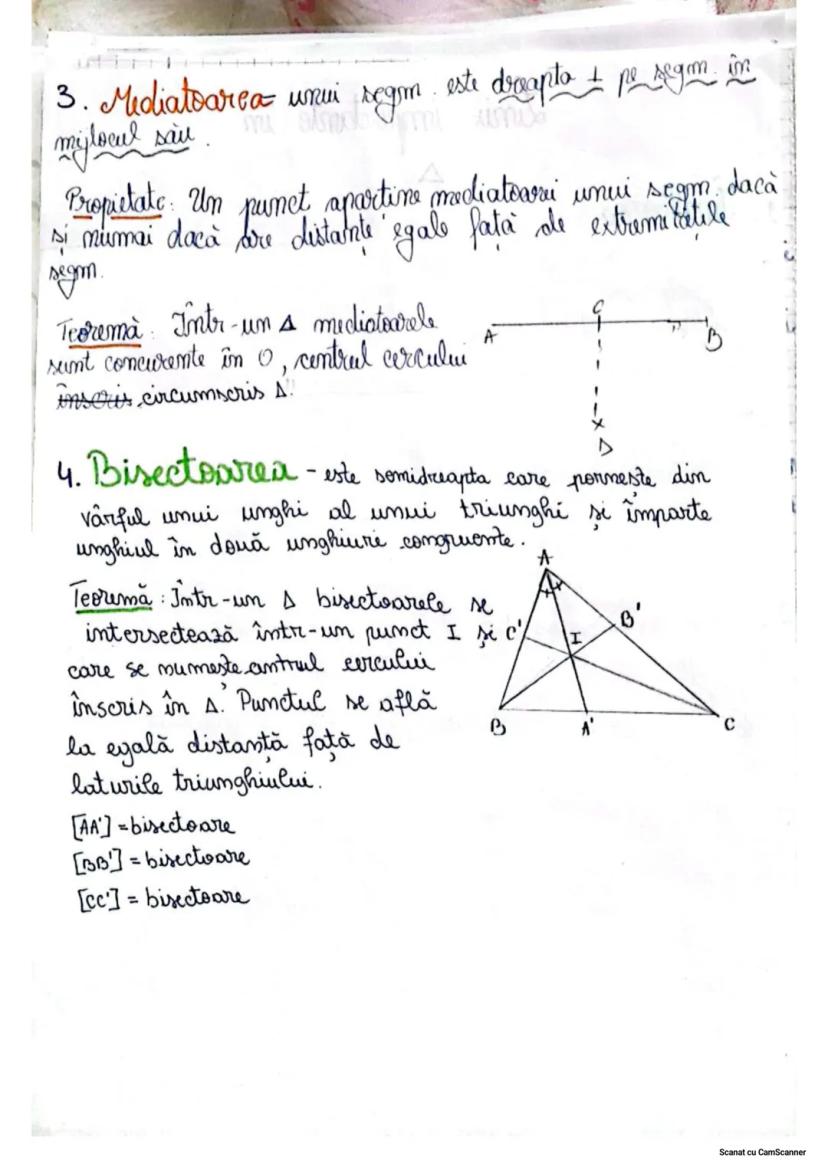 3. Mediatoarea unui segm. este dreapta ⊥ pe segm. în
mijlocul său.
Propietate: Un punct aparține mediatoarei unui segm. dacă
și numai dacă are distanțe egale față de extremitățile
segm.
Teoremă: Într-un Δ mediatoarele
sunt concurente în O, centrul cercului
înscris circumscris Δ.
A C B
D
4. Bisectoarea - este semidreapta care pornește din
vârful unui unghi al unui triunghi și împarte
unghiul în două unghiuri congruente.
Teoremă: Într-un Δ bisectoarele se
intersectează într-un punct I și
care se numește centrul cercului
înscris în Δ. Punctul se află
la egală distanță față de
laturile triunghiului.
A
C' I B'
B A' C
[AA'] = bisectoare
[BB'] = bisectoare
[CC'] = bisectoare
Scanat cu CamScanner